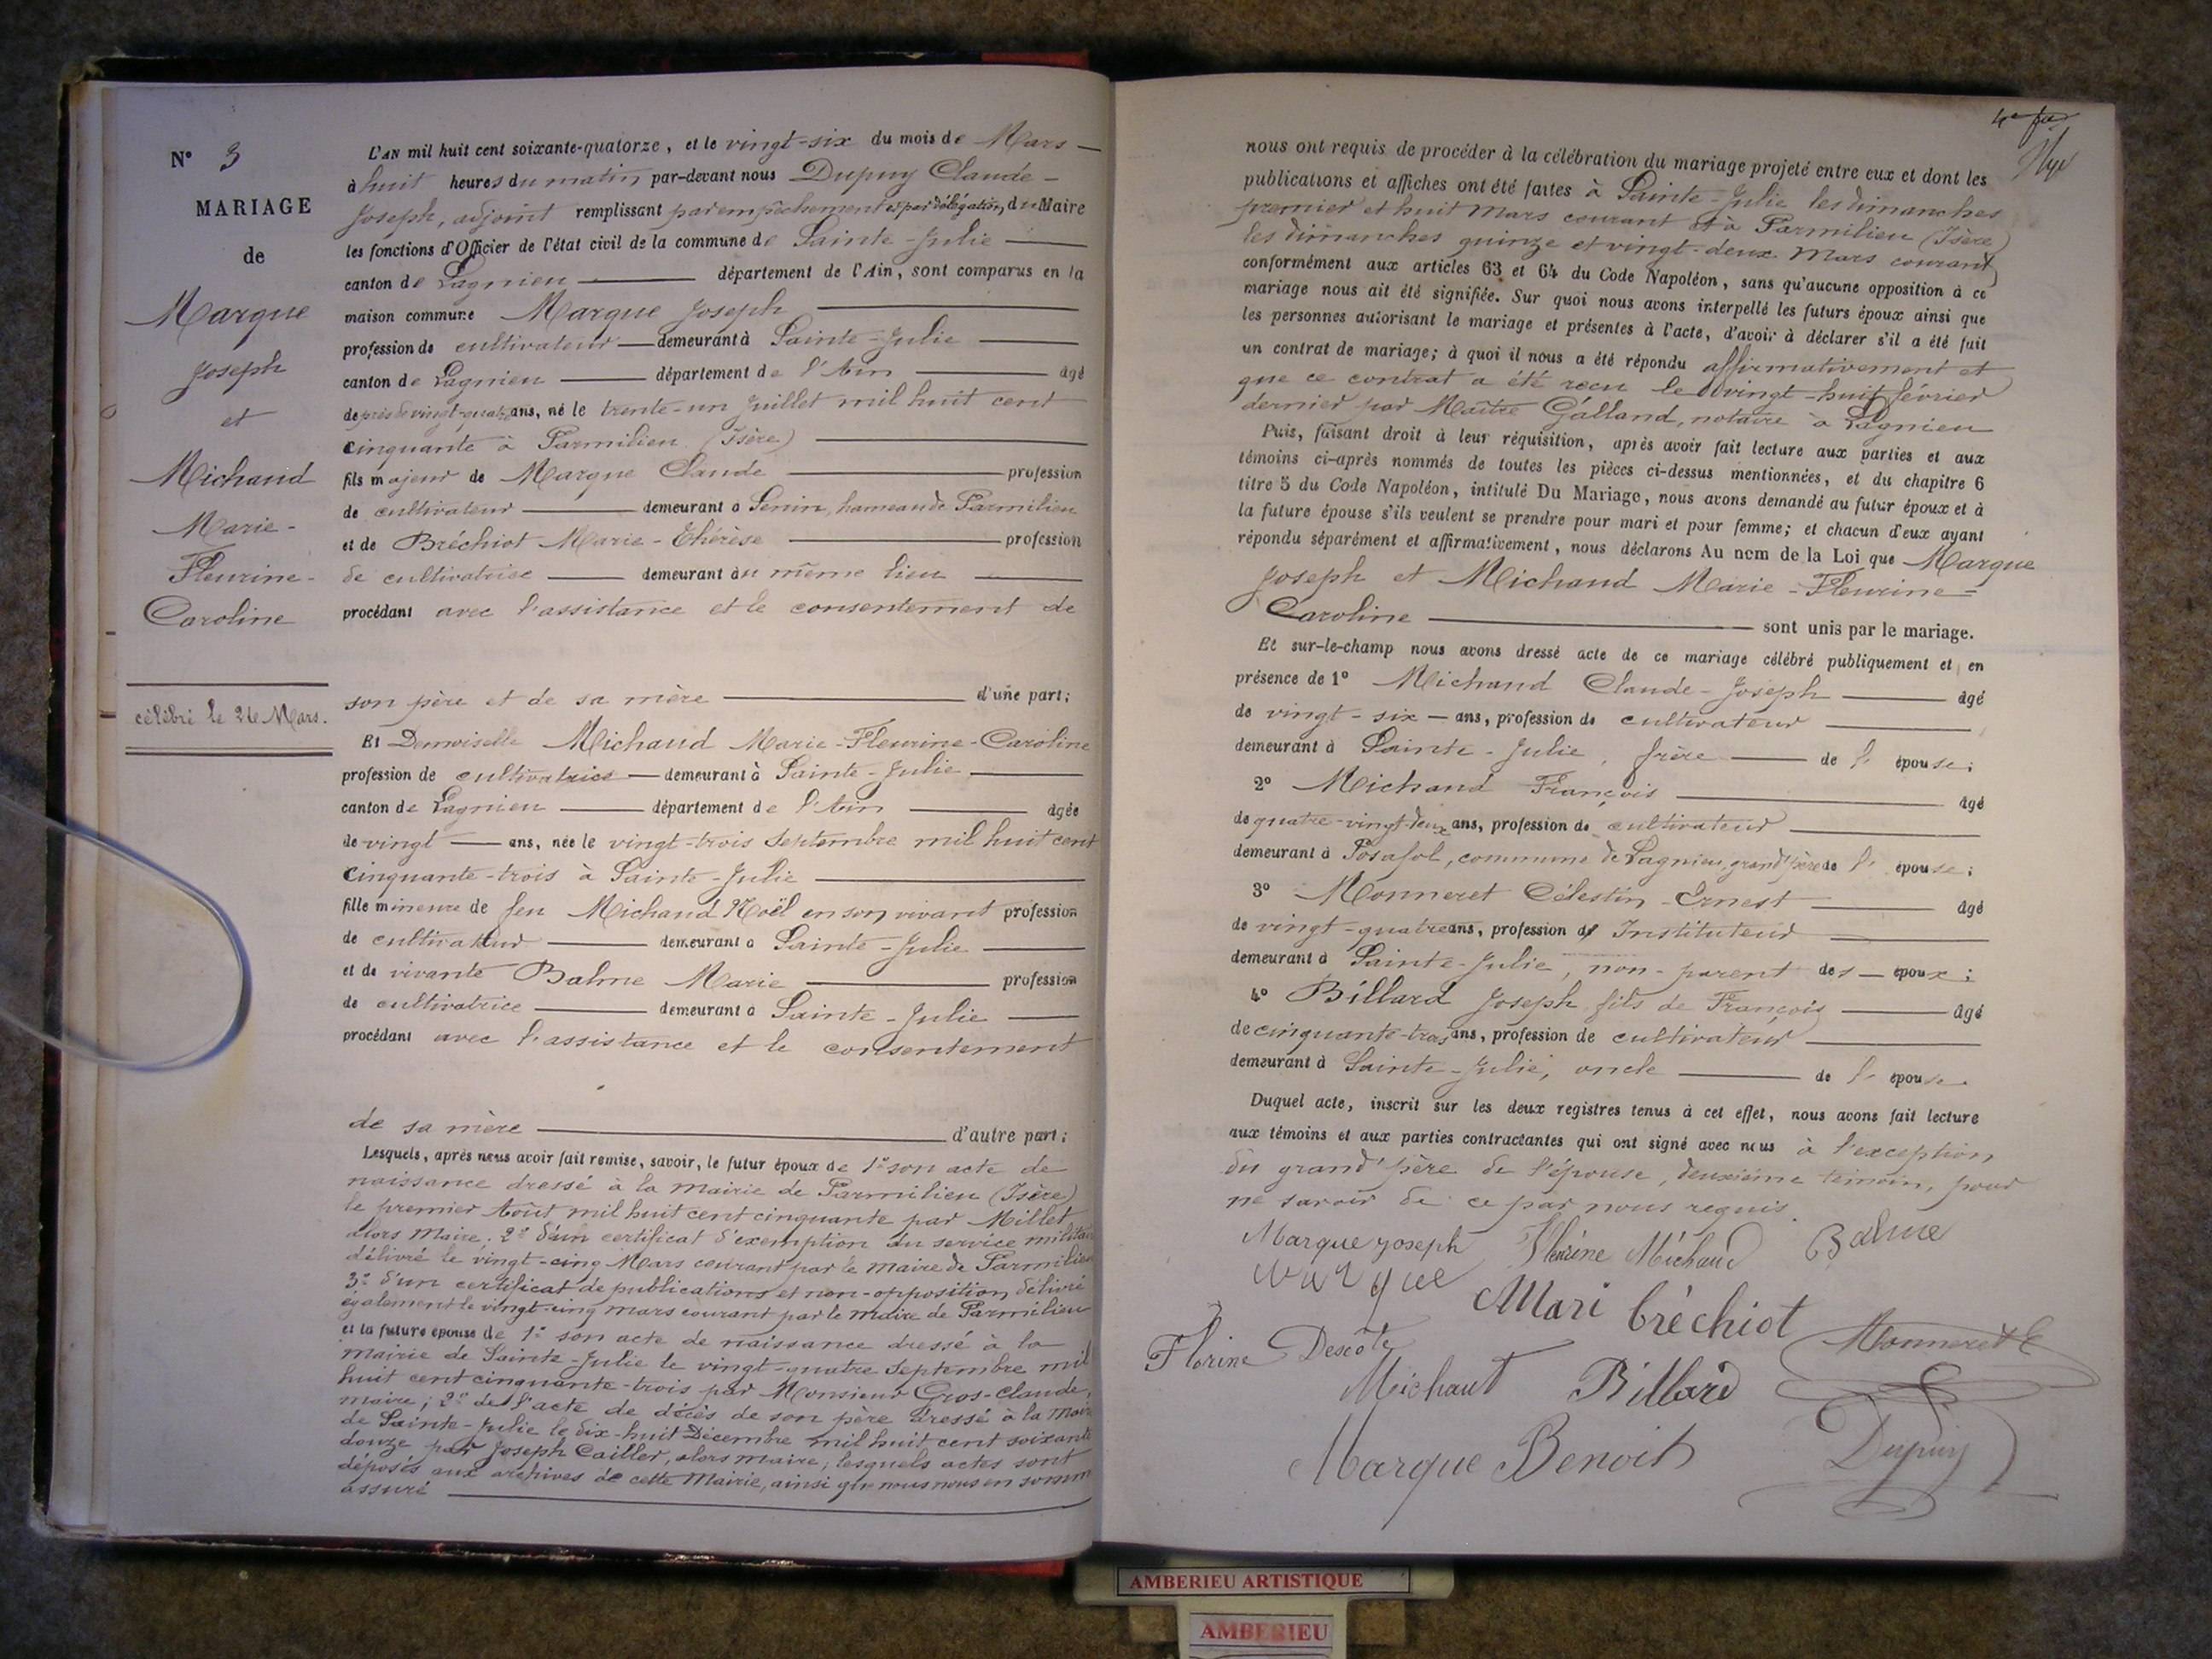 N° 3
MARIAGE
de
Marque
Joseph
et
Michaud
Marie-
Fleurine-
Caroline
célébré le 26 Mars.
L'AN mil huit cent soixante-quatorze, et le vingt-six du mois de Mars
à huit heures du matin par-devant nous Dupuy Claude-
Joseph, adjoint remplissant par empêchement et par délégation, du Maire
les fonctions d'Officier de l'état civil de la commune de Sainte-Julie
canton de Lagnieu département de l'Ain, sont comparus en la
maison commune Marque Joseph
profession de cultivateur demeurant à Sainte-Julie
canton de Lagnieu département de l'Ain âgé
de près de vingt-quatre ans, né le trente-un Juillet mil huit cent
cinquante à Parmilieu (Isère)
fils majeur de Marque Claude profession
de cultivateur demeurant à Senin, hameau de Parmilieu
et de Bréchiot Marie-Thérèse profession
de cultivatrice demeurant au même lieu
procédant avec l'assistance et le consentement de
son père et de sa mère d'une part;
Et Demoiselle Michaud Marie-Fleurine-Caroline
profession de cultivatrice demeurant à Sainte-Julie
canton de Lagnieu département de l'Ain âgée
de vingt ans, née le vingt-trois Septembre mil huit cent
cinquante-trois à Sainte-Julie
fille mineure de feu Michaud Noël en son vivant profession
de cultivateur demeurant à Sainte-Julie
et de vivante Balme Marie profession
de cultivatrice demeurant à Sainte-Julie
procédant avec l'assistance et le consentement
de sa mère d'autre part;
Lesquels, après nous avoir fait remise, savoir, le futur époux de 1° son acte de
naissance dressé à la mairie de Parmilieu (Isère)
le premier Août mil huit cent cinquante par Millet
alors Maire. 2° d'un certificat d'exemption du service militaire
délivré le vingt-cinq Mars courant par le maire de Parmilieu
3° d'un certificat de publications et non-opposition délivré
également le vingt-cinq mars courant par le maire de Parmilieu
et la future épouse de 1° son acte de naissance dressé à la
mairie de Sainte-Julie le vingt-quatre Septembre mil
huit cent cinquante-trois par Monsieur Gros-Claude,
maire; 2° de l'acte de décès de son père dressé à la Mairie
de Sainte-Julie le dix-huit Décembre mil huit cent soixante
douze par Joseph Cailler, alors maire; lesquels actes sont
déposés aux archives de cette Mairie, ainsi que nous nous en sommes
assuré
nous ont requis de procéder à la célébration du mariage projeté entre eux et dont les
publications et affiches ont été faites à Sainte-Julie les dimanches
premier et huit Mars courant et à Parmilieu (Isère)
les dimanches quinze et vingt-deux Mars courant
conformément aux articles 63 et 64 du Code Napoléon, sans qu'aucune opposition à ce
mariage nous ait été signifiée. Sur quoi nous avons interpellé les futurs époux ainsi que
les personnes autorisant le mariage et présentes à l'acte, d'avoir à déclarer s'il a été fait
un contrat de mariage; à quoi il nous a été répondu affirmativement et
que ce contrat a été reçu le vingt-huit février
dernier par Maître Galland, notaire à Lagnieu
Puis, faisant droit à leur réquisition, après avoir fait lecture aux parties et aux
témoins ci-après nommés de toutes les pièces ci-dessus mentionnées, et du chapitre 6
titre 5 du Code Napoléon, intitulé Du Mariage, nous avons demandé au futur époux et à
la future épouse s'ils veulent se prendre pour mari et pour femme; et chacun d'eux ayant
répondu séparément et affirmativement, nous déclarons Au nom de la Loi que Marque
Joseph et Michaud Marie-Fleurine-
Caroline sont unis par le mariage.
Et sur-le-champ nous avons dressé acte de ce mariage célébré publiquement et en
présence de 1° Michaud Claude-Joseph âgé
de vingt-six ans, profession de cultivateur
demeurant à Sainte-Julie, frère de l'épouse;
2° Michaud François âgé
de quatre-vingt-deux ans, profession de cultivateur
demeurant à Posafol, commune de Lagnieu, grand'père de l'épouse;
3° Monneret Célestin-Ernest âgé
de vingt-quatre ans, profession d'Instituteur
demeurant à Sainte-Julie, non-parent des époux;
4° Billard Joseph fils de François âgé
de cinquante-trois ans, profession de cultivateur
demeurant à Sainte-Julie, oncle de l'épouse.
Duquel acte, inscrit sur les deux registres tenus à cet effet, nous avons fait lecture
aux témoins et aux parties contractantes qui ont signé avec nous à l'exception
du grand'père de l'épouse, deuxième témoin, pour
ne savoir de ce par nous requis.
Marque Joseph Fleurine Michaud Balme
Marque
Mari bréchiot
Florine Descôte Monneret E
Michaut Billard
Marque Benoit Dupuy
AMBERIEU ARTISTIQUE
AMBERIEU